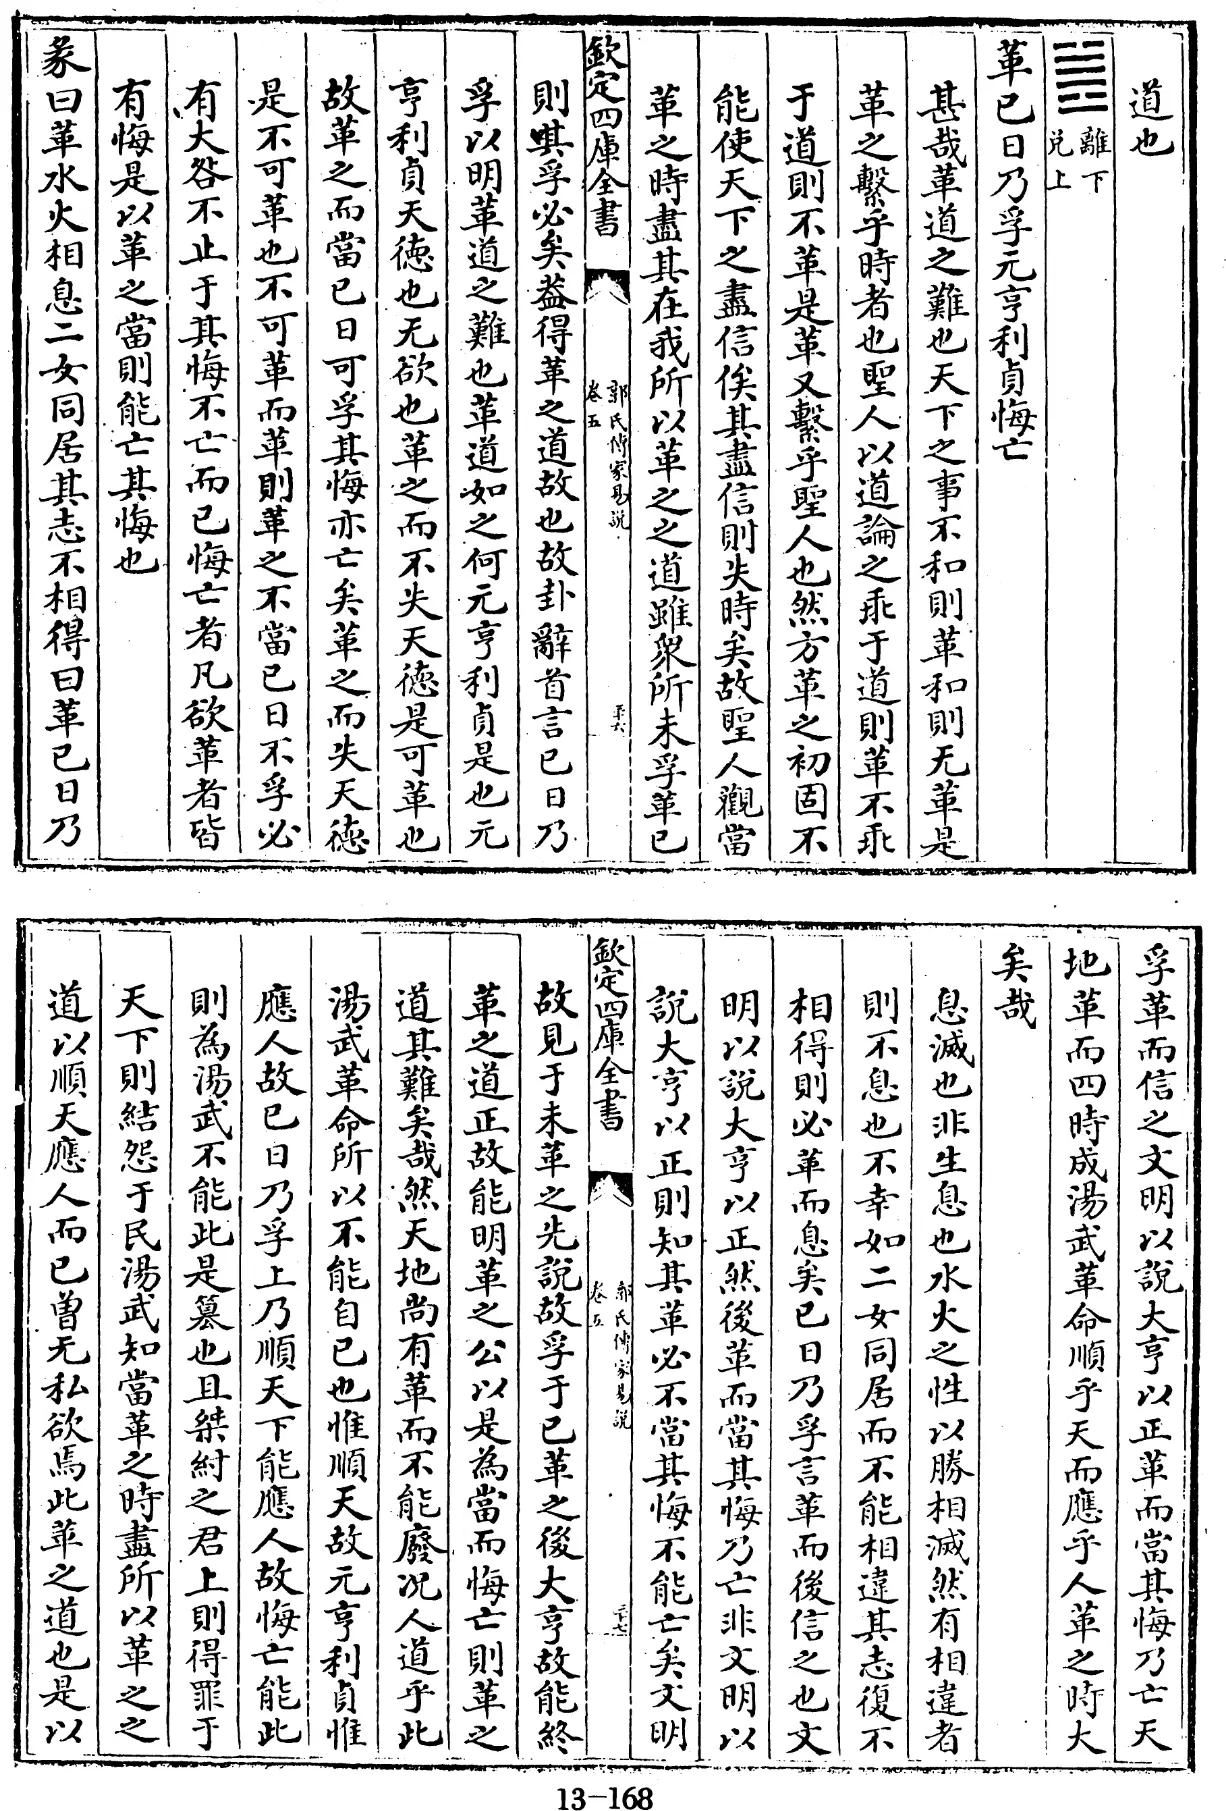 道也
離下
兌上
革已日乃孚元亨利貞悔亡
甚哉革道之難也天下之事不和則革和則无革是
革之繫乎時者也聖人以道論之乖于道則革不乖
于道則不革是革又繫乎聖人也然方革之初固不
能使天下之盡信俟其盡信則失時矣故聖人觀當
革之時盡其在我所以革之之道雖衆所未孚革已
欽定四庫全書
郭氏傳家易說
卷五
三十六
則其孚必矣葢得革之道故也故卦辭首言已日乃
孚以明革道之難也革道如之何元亨利貞是也元
亨利貞天德也无欲也革之而不失天德是可革也
故革之而當已日可孚其悔亦亡矣革之而失天德
是不可革也不可革而革則革之不當已日不孚必
有大咎不止于其悔不亡而已悔亡者凡欲革者皆
有悔是以革之當則能亡其悔也
彖曰革水火相息二女同居其志不相得曰革已日乃
孚革而信之文明以說大亨以正革而當其悔乃亡天
地革而四時成湯武革命順乎天而應乎人革之時大
矣哉
息滅也非生息也水火之性以勝相滅然有相違者
則不息也不幸如二女同居而不能相違其志復不
相得則必革而息矣已日乃孚言革而後信之也文
明以說大亨以正然後革而當其悔乃亡非文明以
說大亨以正則知其革必不當其悔不能亡矣文明
欽定四庫全書
郭氏傳家易說
卷五
三十七
故見于未革之先說故孚于已革之後大亨故能終
革之道正故能明革之公以是為當而悔亡則革之
道其難矣哉然天地尚有革而不能廢况人道乎此
湯武革命所以不能自已也惟順天故元亨利貞惟
應人故已日乃孚上乃順天下能應人故悔亡能此
則為湯武不能此是簒也且桀紂之君上則得罪于
天下則結怨于民湯武知當革之時盡所以革之之
道以順天應人而已曾无私欲焉此革之道也是以
13-168